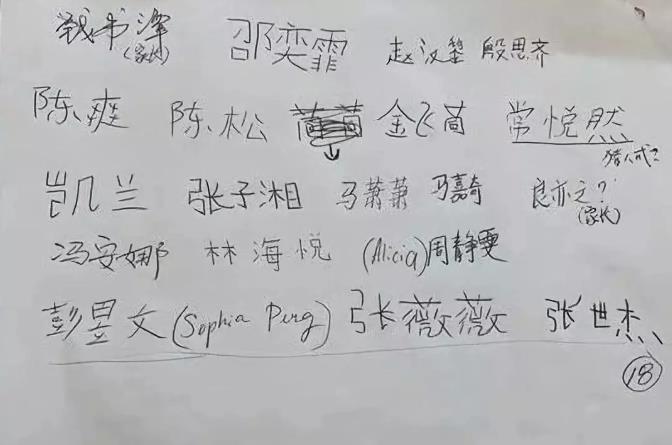 钱书泽 邵奕霏 赵汉黎 殷思齐
(家长)
陈爽 陈松 金飞茼 常悦然
凯兰 张子湘 马萧萧 马嘉奇 良亦之?
(家长)
冯安娜 林海悦 (Alicia)周静雯
彭昱文(Sophia Peng) 张薇薇 张世杰
18